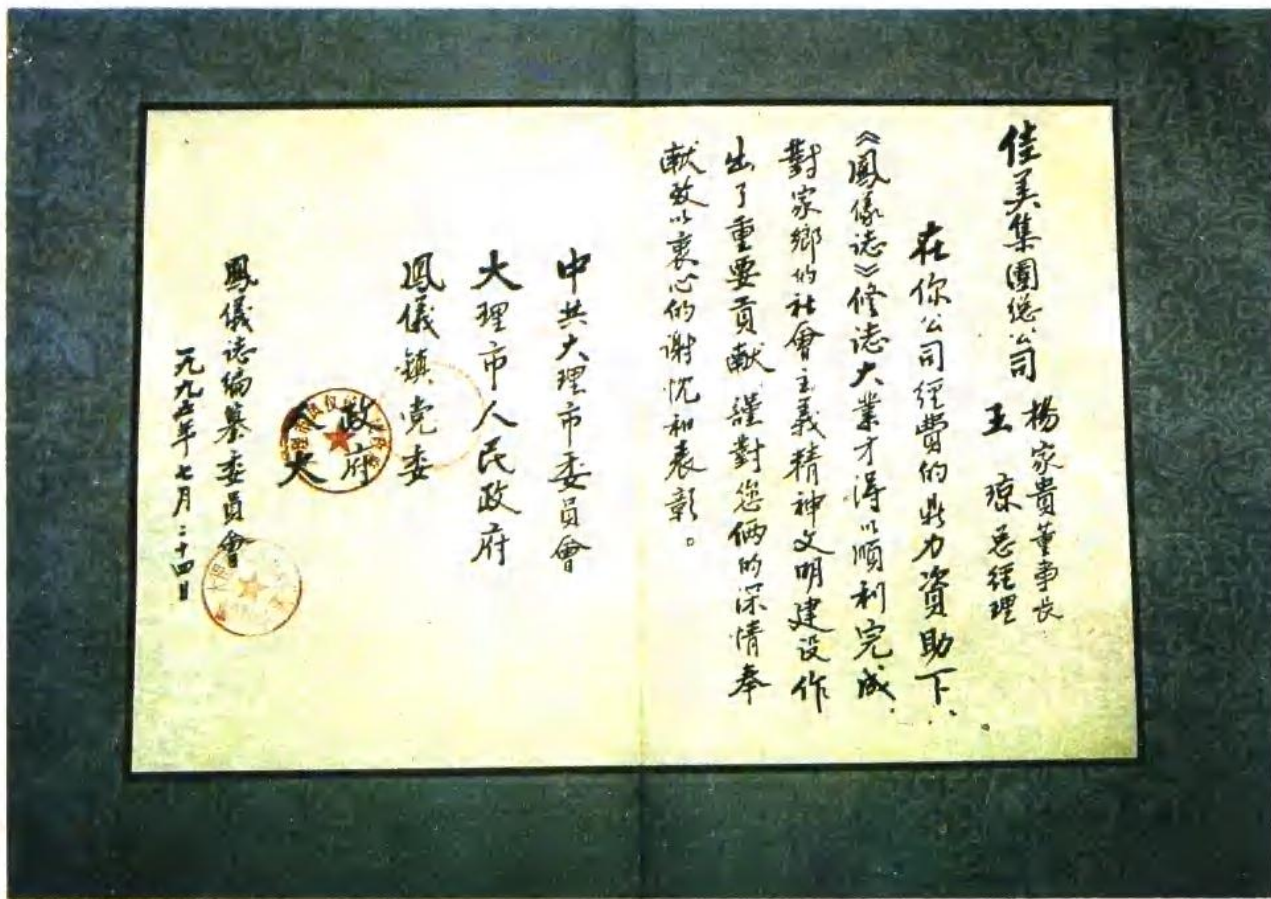 佳美集團总公司
楊家貴董事长
王 琼总經理
在你公司經費的鼎力資助下、
《鳳儀誌》修誌大業才得以順利完成、
對家鄉的社會主義精神文明建设作
出了重要貢献、謹對您俩的深情奉
献致以衷心的谢忱和表彰。
中共大理市委員會
大理市人民政府
鳳儀镇党委
政府
人大
鳳儀誌編纂委員會
一九九五年七月二十四日